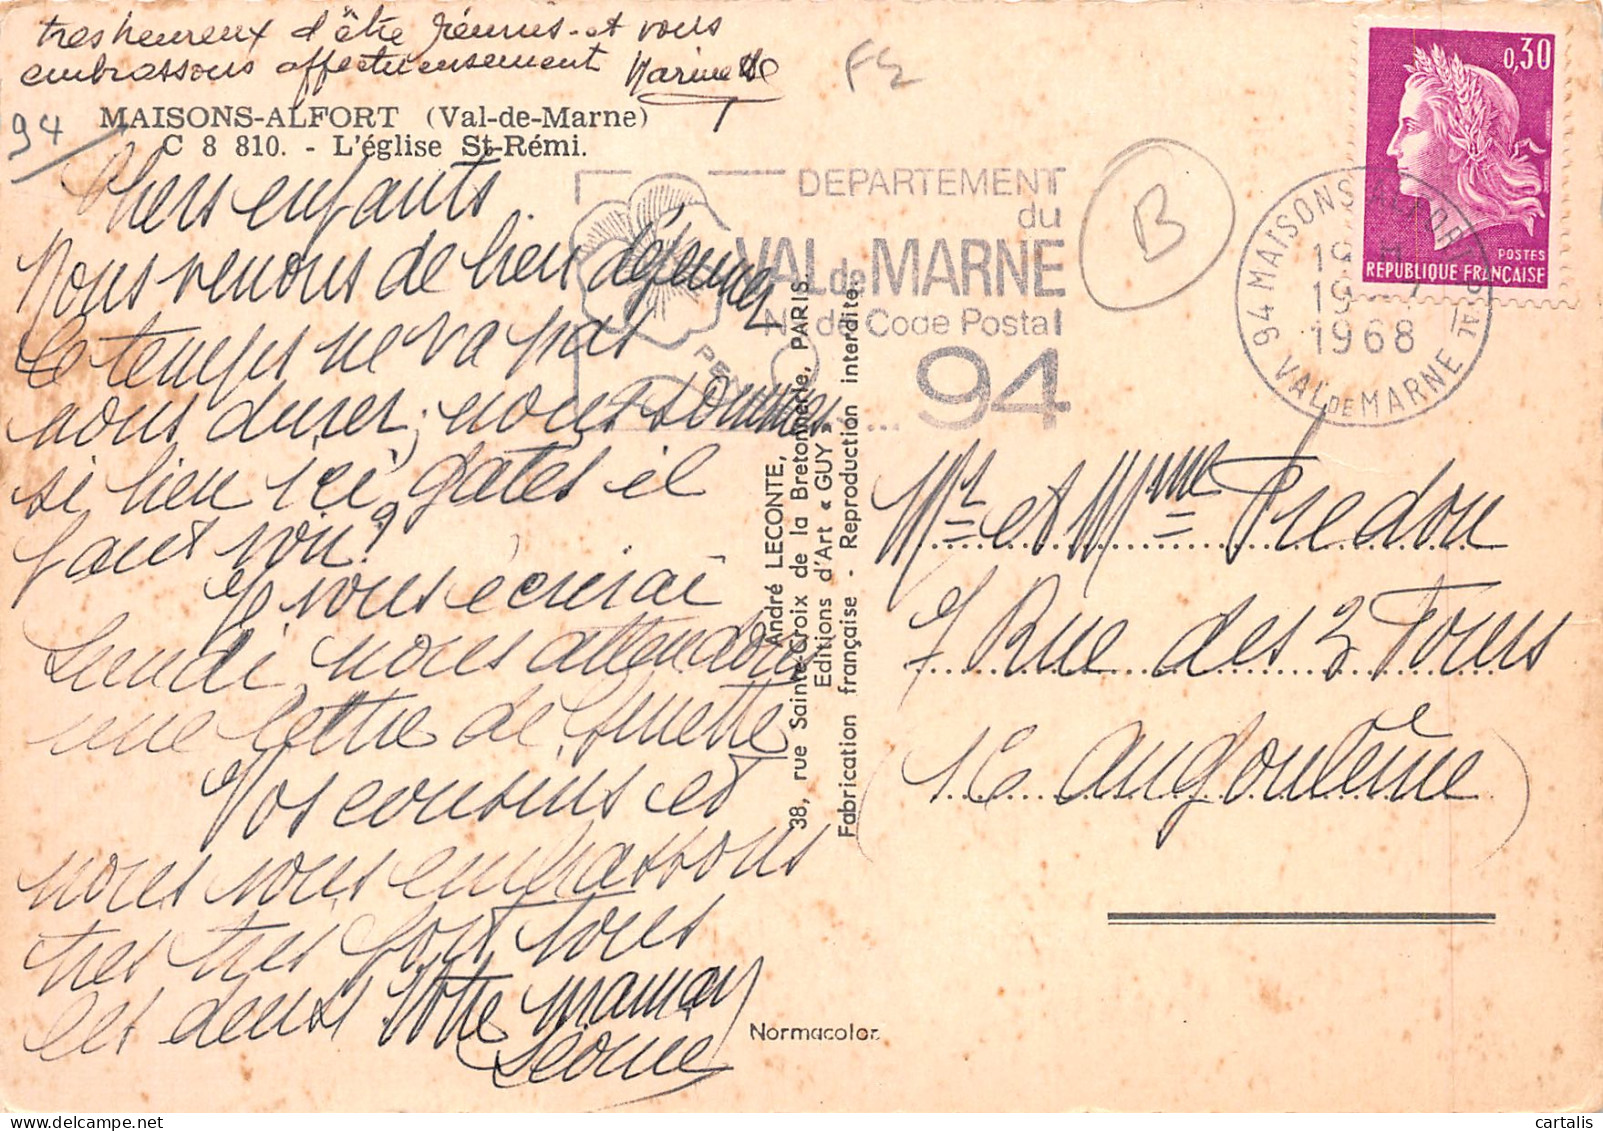 tres heureux d'être réunis - et vous
embrassons affectueusement Marinette
94
MAISONS-ALFORT (Val-de-Marne)
C 8 810. - L'église St-Rémi.
Chers enfants.
Nous venons de bien déjeuner
le temps ne va pas
nous durer, nous sommes
si bien ici gates il
faut voir?
Je vous écrirai
Lundi, nous attendons
une lettre de Ginette
Vos cousins et
nous vous embrassons
tres tres fort tous
les deux Votre maman
Léonie
André LECONTE,
38, rue Sainte-Croix de la Bretonnerie, PARIS.
Editions d'Art « GUY »
Fabrication française - Reproduction interdite.
Normacolor.
DEPARTEMENT
du
VAL de MARNE
N° de Code Postal
... 94
B
0,30
POSTES
REPUBLIQUE FRANÇAISE
94 MAISONS-ALFORT PPAL
19
19
1968
VAL DE MARNE
Mr et Mme Predon
7 Rue des 3 Fours
16 Angoulême
cartalis | delcampe.net